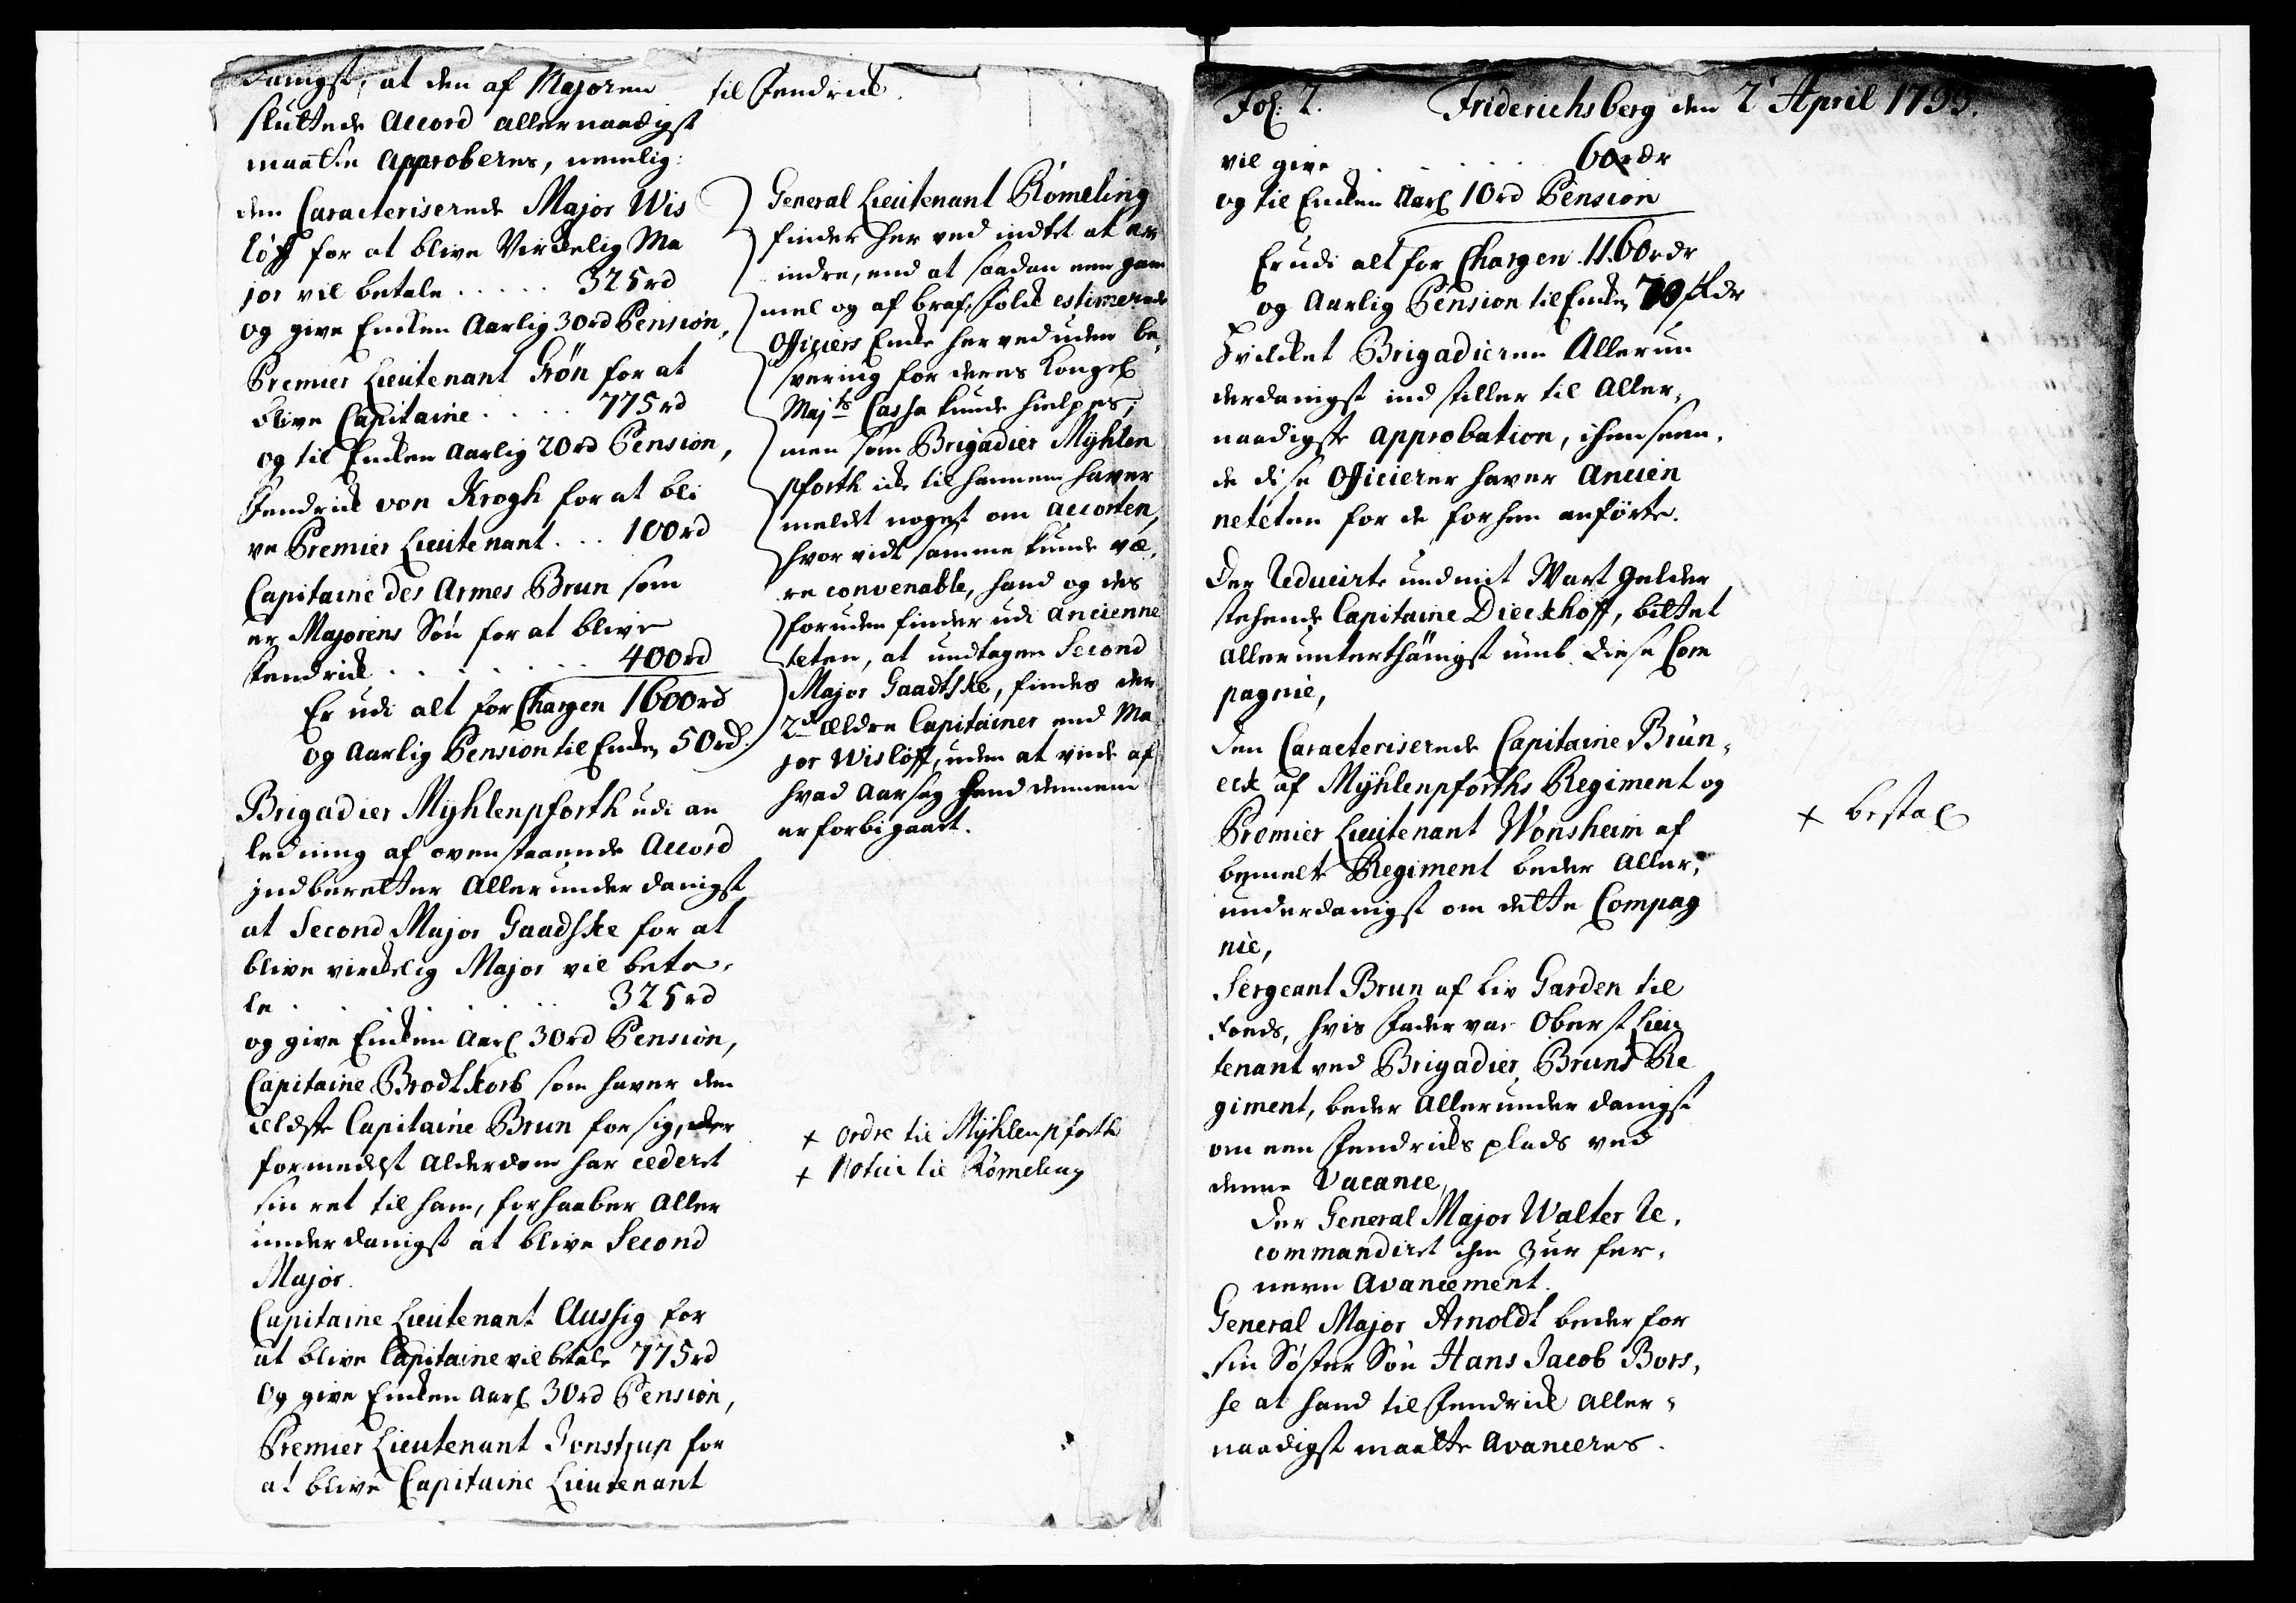 danigst, at den af Majoren
sluttede Accord allernaadigst
maatte Approberes, nemlig:
den Caracteriserede Major Wis
löff for at blive Virckelig Ma
jor vil betale ..... 325rd
og give Encken Aarlig 30rd Pension,
Premier Lieutenant Grön for at
blive Capitaine .... 775rd
og til Encken Aarlig 20rd Pension,
Fendrick von Krogh for at bli
ve Premier Lieutenant ... 100rd
Capitaine des Armes Brun som
er Majorens Sön for at blive
Fendrick ...... 400rd
Er udi alt for Chargen 1600rd
og Aarlig Pension til Encken 50rd.
Brigadier Myhlenpforth udi an
ledning af ovenstaaende Accord
jndberetter Allerunderdanigst
at Second Major Gaadske for at
blive virckelig Major vil beta,
le ....... 325rd
og give Encken Aarl 30rd Pension,
Capitaine Brodtkorb som haver den
Eldste Capitaine Brun for sig, der
formedelst Alderdom har cederet
sin ret til ham, forhaaber Aller
underdanigst at blive Second
Major.
Capitaine Lieutenant Aussig for
at blive Capitaine vil betale 775rd
Og give Encken Aarl 30rd Pension,
Premier Lieutenant Tonstrup for
at blive Capitaine Lieutenant
til Fendrick.
General Lieutenant Römeling
finder her ved indtet at er
indre, end at saadan een gam
mel og af brafe folck estimerede
Officiers Encke her ved uden be,
svering for deres Kongel
Majts Cassa kunde hielpes;
men som Brigadier Myhlen
pforth icke til hannem haver
meldet noget om Accorten,
hvor vidt samme kunde væ,
re convenable, hand og des
foruden finder udi Ancienne
teten, at undtagen Second
Major Gaadtske, findes der
2de ældre Capitainer end Ma
jor Wislöff, uden at vide af
hvad Aarsag hand dennem
er forbigaaet.
+ Ordre til Myhlenpforth
+ Notice til Römeling
Fol: 2. Friderichsberg den 2 April 1735.
vil give ..... 60rdr
og til Encken Aarl 10rd Pension
Er udi alt for Chargen 1160rdr
og Aarlig Pension til Encken 70 rdr
Hvilcket Brigadieren Allerun
derdanigst indstiller til Aller,
naadigste Approbation, ihenseen,
de disse Officierer haver Ancien
neteten for de forhen anförte.
Der Reducirte und mit Wart Gelder
stehende Capitaine Dieckhoff, bittet
Allerunterthänigst umb diese Com
pagnie,
Den Caracteriserede Capitaine Brün,
eck af Myhlenpforths Regiment og
Premier Lieutenant Wonsheim af
bemelte Regiment beder Aller,
underdanigst om dette Compag
nie,
Sergeant Brun af Liv Garden til
Foeds, hvis Fader var Oberst Lieu
tenant ved Brigadier Bruns Re
giment, beder Allerunderdanigst
om een Fendricks plads ved
denne Vacance,
Der General Major Walter Re,
commandiret ihm zur fer,
nern Avancement.
General Major Arnoldt beder for
sin Söster Sön Hans Jacob Bors,
se at hand til Fendrick Aller,
naadigst maatte Avanceres.
+ bestal